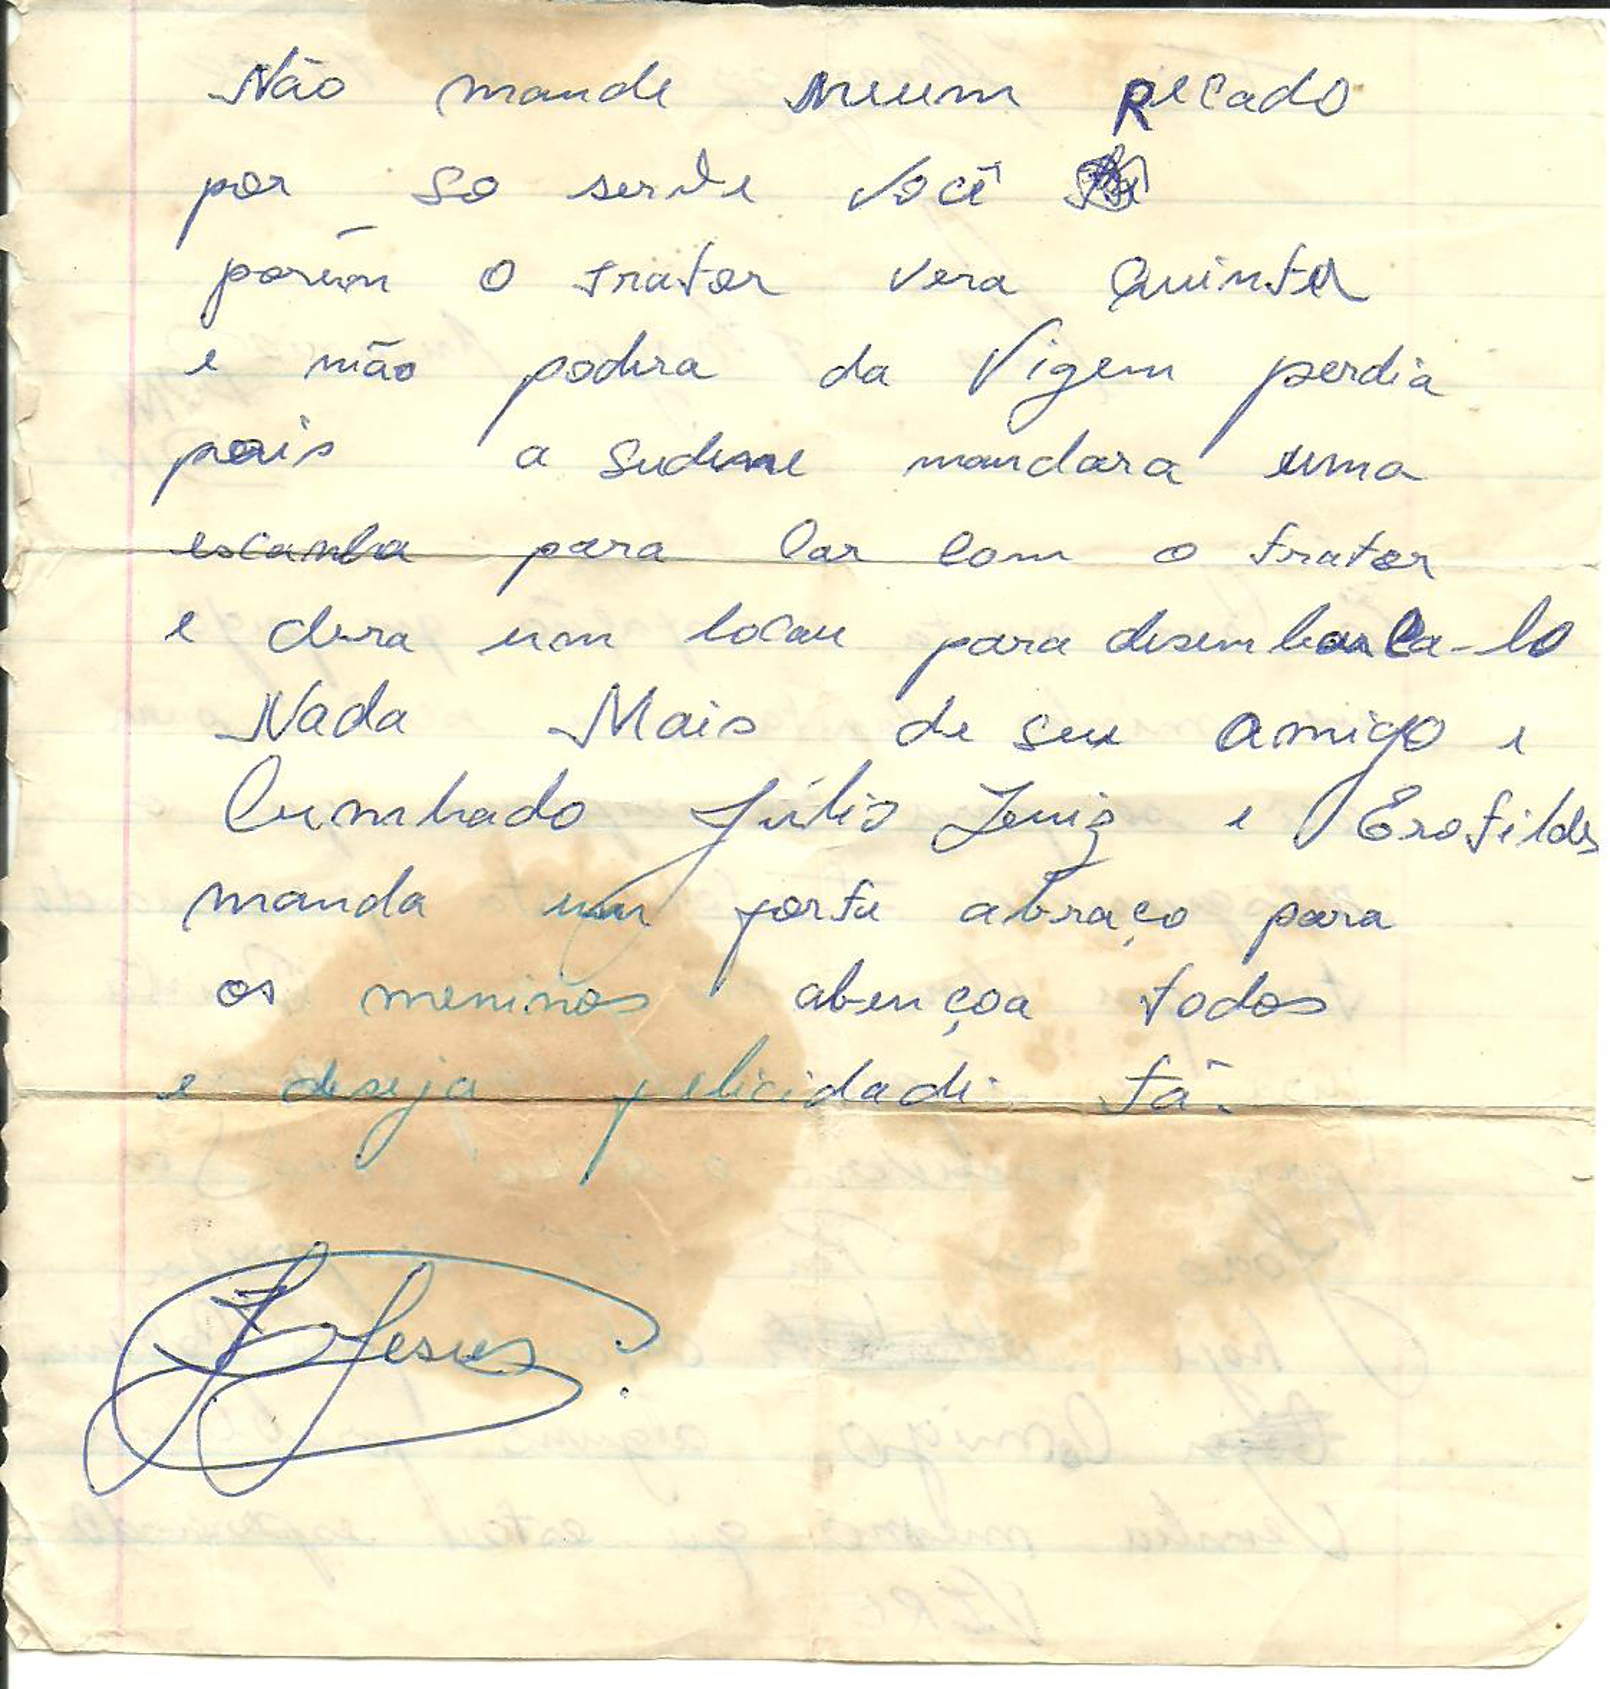 Não mande neum Recado
por so serve você
porém o trator vera Quinta
e não podera da Vigem perdia
pois a Sudene mandara uma
escamba para Car com o trator
e dera um locau para desembarca-lo
Nada Mais de seu amigo e
Cumhado Júlio Luiz e Erofildes
manda um forte abraço para
os meninos abençoa todos
e deseja felicidade tá.
Jesus